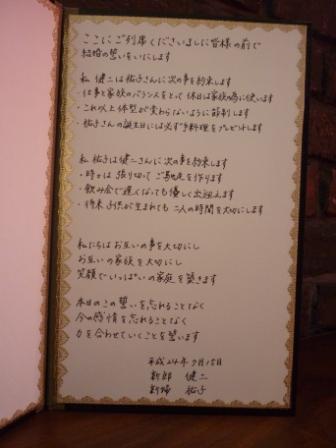 ここにご列席くださいましに皆様の前で
結婚の誓いをいにします
私 健二は祐子さんに次の事を約束します
・仕事と家族のバランスをとって 休日は家族の為に使います
・これ以上 体型が変わらないように節制します
・祐子さんの誕生日には必ず手料理をプレゼントします
私 祐子は健二さんに次の事を約束します
・時々は張り切って ご馳走を作ります
・飲み会で遅くなっても優しく出迎えます
・将来 子供が生まれても 二人の時間を大切にします
私たちはお互いの事を大切にし
お互いの家族を大切にし
笑顔でいっぱいの家庭を築きます
本日のこの誓いを忘れることなく
今の感情を忘れることなく
力を合わせていくことを誓います
平成24年 月15日
新郎 健二
新婦 祐子